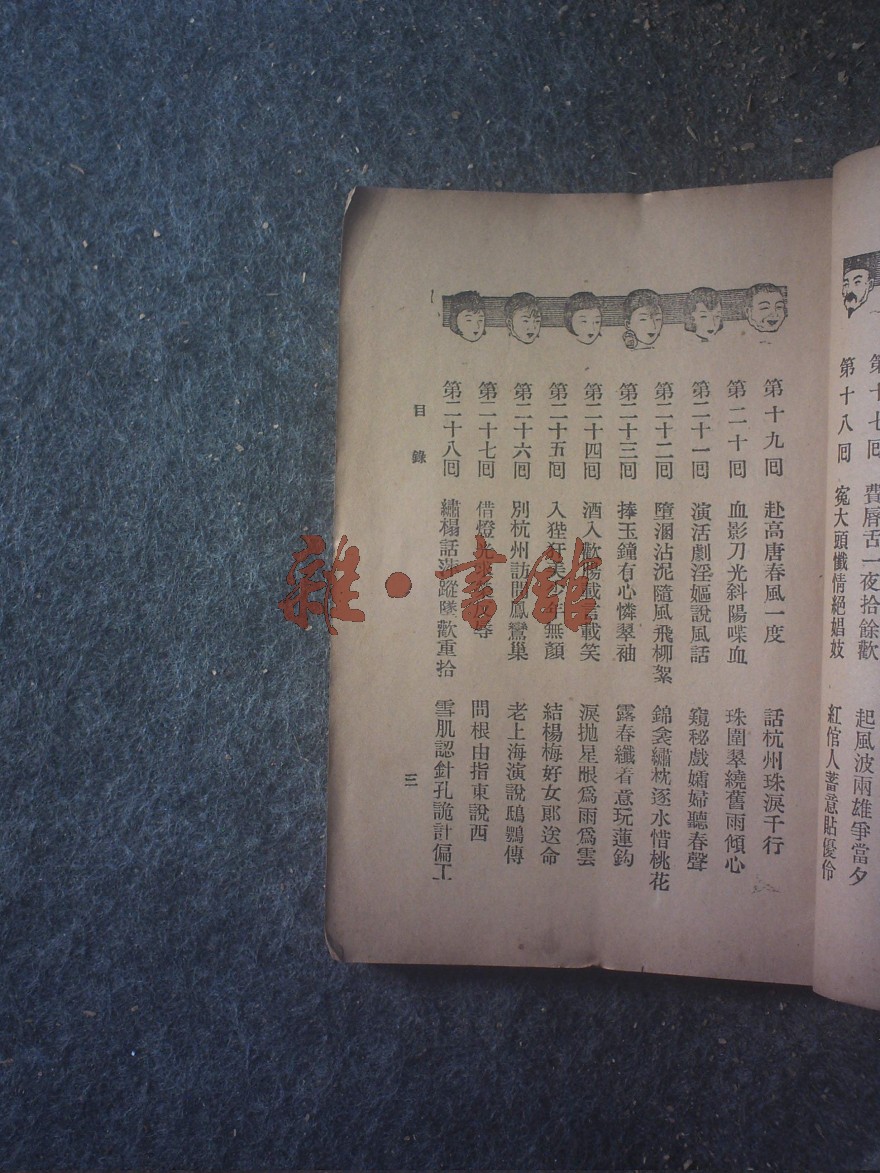 第十七囘 費唇舌一夜拾餘歡 起風波兩雄爭當夕
第十八囘 寃大頭懺情絕娼妓 紅倌人蓄意貼優伶
第十九囘 赴高唐春風一度 話杭州珠淚千行
第二十囘 血影刀光斜陽喋血 珠圍翠繞舊雨傾心
第二十一囘 演活劇淫嫗說風話 窺秘戲孀婦聽春聲
第二十二囘 墮溷沾泥隨風飛柳絮 錦衾繡枕逐水惜桃花
第二十三囘 捧玉鐘有心憐翠袖 露春纖着意玩蓮鈎
第二十四囘 酒入歡腸載言載笑 淚拋星眼爲雨爲雲
第二十五囘 入狴犴美少年無顏 結楊梅好女郞送命
第二十六囘 別杭州訪問鳳鸞巢 老上海演說鴟鸚傳
第二十七囘 借燈光 辱 問根由指東說西
第二十八囘 繡榻話萍蹤墜歡重拾 雪肌認針孔詭計偏工
目錄
三
雜·書館